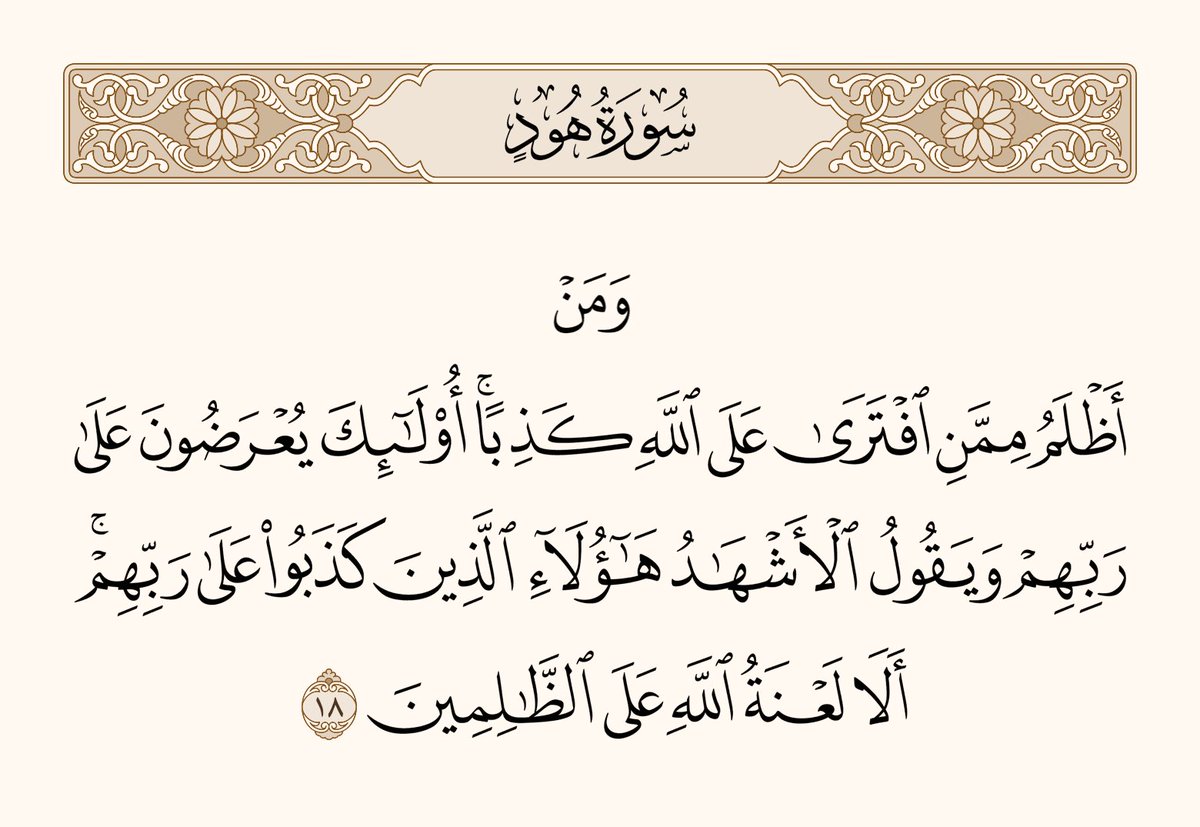 سُورَةُ هُودٍ
وَمَنۡ
أَظۡلَمُ مِمَّنِ ٱفۡتَرَىٰ عَلَى ٱللَّهِ كَذِبًاۚ أُوْلَـٰٓئِكَ يُعۡرَضُونَ عَلَىٰ
رَبِّهِمۡ وَيَقُولُ ٱلۡأَشۡهَـٰدُ هَـٰٓؤُلَآءِ ٱلَّذِينَ كَذَبُواْ عَلَىٰ رَبِّهِمۡۚ
أَلَا لَعۡنَةُ ٱللَّهِ عَلَى ٱلظَّـٰلِمِينَ ١٨